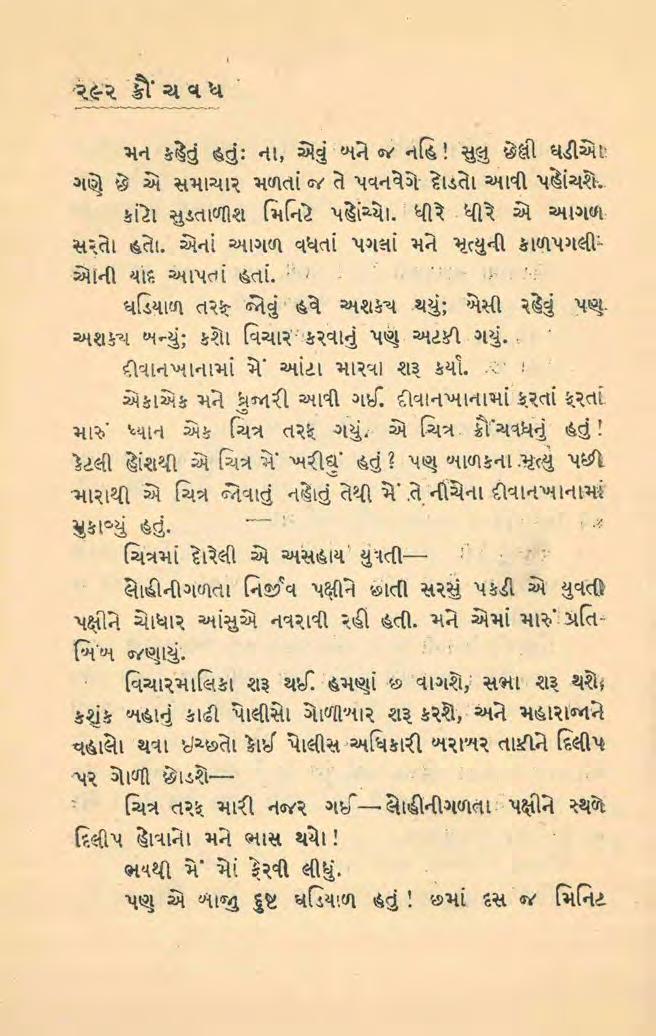 ૨૯૨ ક્રૌંચવધ
મન કહેતું હતું: ના, એવું બને જ નહિ! સુલુ છેલ્લી ઘડીઓ
ગણે છે એ સમાચાર મળતાં જ તે પવનવેગે દોડતો આવી પહોંચશે.
કાંટો સુડતાળીશ મિનિટે પહોંચ્યો. ધીરે ધીરે એ આગળ
સરતો હતો. એનાં આગળ વધતાં પગલાં મને મૃત્યુની કાળપગલી-
ઓની યાદ આપતાં હતાં.
ઘડિયાળ તરફ જોવું હવે અશક્ય થયું; બેસી રહેવું પણ
અશક્ય બન્યું; કશો વિચાર કરવાનું પણ અટકી ગયું.
દીવાનખાનામાં મેં આંટા મારવા શરૂ કર્યા.
એકાએક મને ધ્રુજારી આવી ગઈ. દીવાનખાનામાં ફરતાં ફરતાં
મારું ધ્યાન એક ચિત્ર તરફ ગયું. એ ચિત્ર ક્રૌંચવધનું હતું!
કેટલી હોંશથી એ ચિત્ર મેં ખરીદ્યું હતું? પણ બાળકના મૃત્યુ પછી
મારાથી એ ચિત્ર જોવાતું નહોતું તેથી મેં તે નીચેના દીવાનખાનામાં
મુકાવ્યું હતું.
ચિત્રમાં દોરેલી એ અસહાય યુવતી—
લોહીનીગળતા નિર્જીવ પક્ષીને છાતી સરસું પકડી એ યુવતી
પક્ષીને ચોધાર આંસુએ નવરાવી રહી હતી. મને એમાં મારું પ્રતિ-
બિંબ જણાયું.
વિચારમાલિકા શરૂ થઈ. હમણાં છ વાગશે, સભા શરૂ થશે;
કશુંક બહાનું કાઢી પોલીસો ગોળીબાર શરૂ કરશે, અને મહારાજાને
વહાલો થવા ઇચ્છતો કોઈ પોલીસ અધિકારી બરાબર તાકીને દિલીપ
પર ગોળી છોડશે—
ચિત્ર તરફ મારી નજર ગઈ—લોહીનીગળતા પક્ષીને સ્થળે
દિલીપ હોવાનો મને ભાસ થયો!
ભયથી મેં મોં ફેરવી લીધું.
પણ એ બાજુ દુષ્ટ ઘડિયાળ હતું! છમાં દસ જ મિનિટ